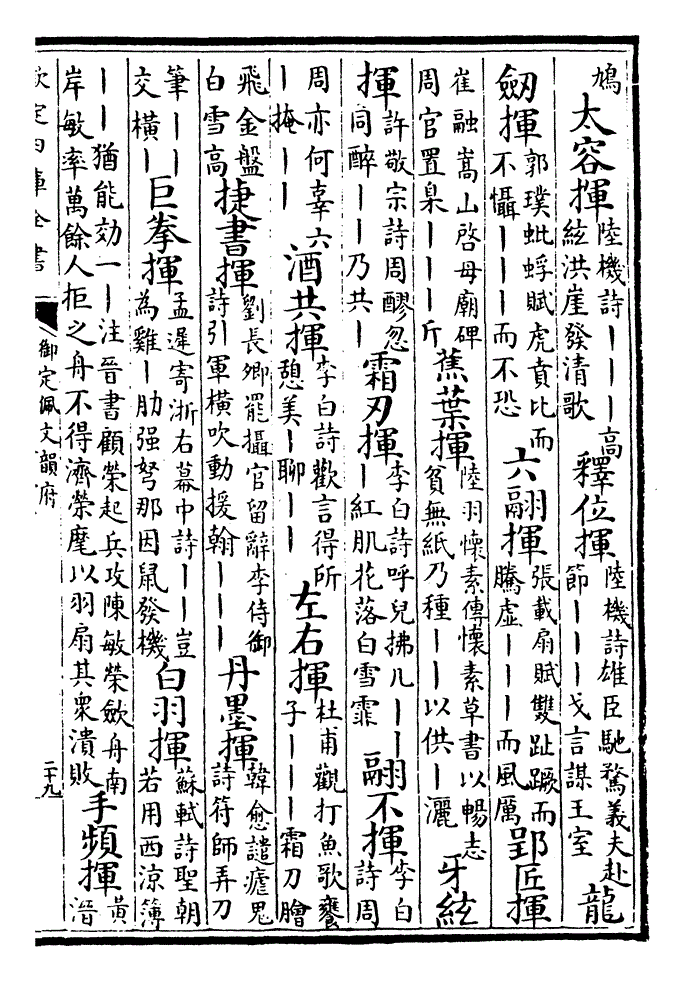 鳩 太容揮 陸機詩｜｜｜高絃洪崖發清歌 釋位揮 陸機詩雄臣馳騖義夫赴節｜｜｜戈言謀王室 龍
劒揮 郭璞蚍蜉賦虎賁比而不懾｜｜｜而不恐 六翮揮 張載扇賦雙趾蹶而騰虛｜｜｜而風厲 郢匠揮
崔融嵩山啓母廟碑周官置臬｜｜｜斤 蕉葉揮 陸羽懷素傳懷素草書以暢志貧無紙乃種｜｜以供｜灑 牙絃
揮 許敬宗詩周醪忽同醉｜｜乃共｜ 霜刃揮 李白詩呼兒拂几｜｜｜紅肌花落白雪霏 翮不揮 李白詩周
周亦何辜六｜｜掩｜｜ 酒共揮 李白詩歡言得所憩美｜聊｜｜ 左右揮 杜甫觀打魚歌饔子｜｜｜霜刀膾
飛金盤白雪高 捷書揮 劉長卿罷攝官留辭李侍御詩引軍橫吹動援翰｜｜｜ 丹墨揮 韓愈譴瘧鬼詩符師弄刀
筆｜｜交橫｜ 巨拳揮 孟遲寄浙右幕中詩｜｜豈為雞｜肋强弩那因鼠發機 白羽揮 蘇軾詩聖朝若用西涼簿
｜｜猶能効一｜注晉書顧榮起兵攻陳敏榮斂舟南岸敏率萬餘人拒之舟不得濟榮麾以羽扇其衆潰敗 手頻揮 黃溍
欽定四庫全書 御定佩文韻府 二十九